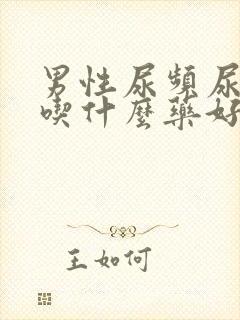 男性尿頻尿
喫什麼藥好
王如何